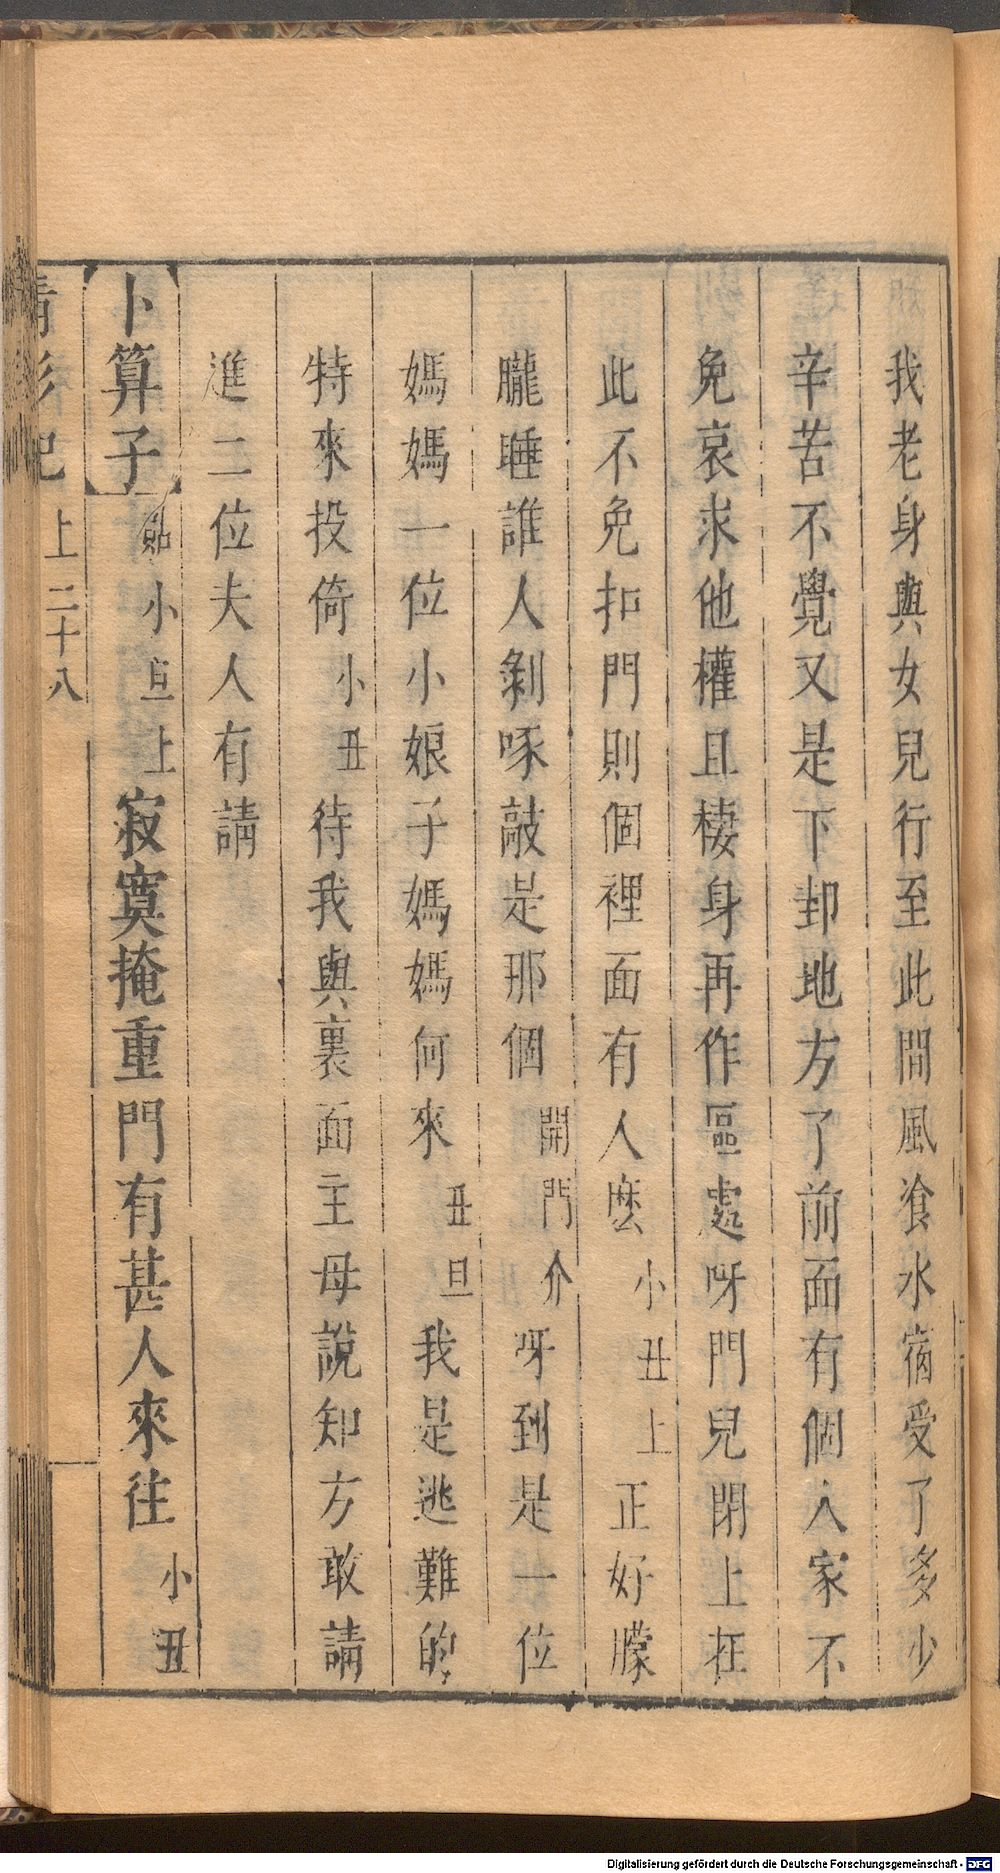 我老身與女兒行至此間風飡水宿受了多少
辛苦不覺又是下邽地方了前面有個人家不
免哀求他權且棲身再作區處呀門兒閉上在
此不免扣門則個裡面有人麽小丑上正好朦
朧睡誰人剝啄敲是那個開門介呀到是一位
媽媽一位小娘子媽媽何來丑旦我是逃難的
特來投倚小丑待我與裏面主母說知方敢請
進二位夫人有請
卜算子貼小旦上寂寞掩重門有甚人來往小丑
記上二十八
Digitalisierung gefördert durch die Deutsche Forschungsgemeinschaft - DFG